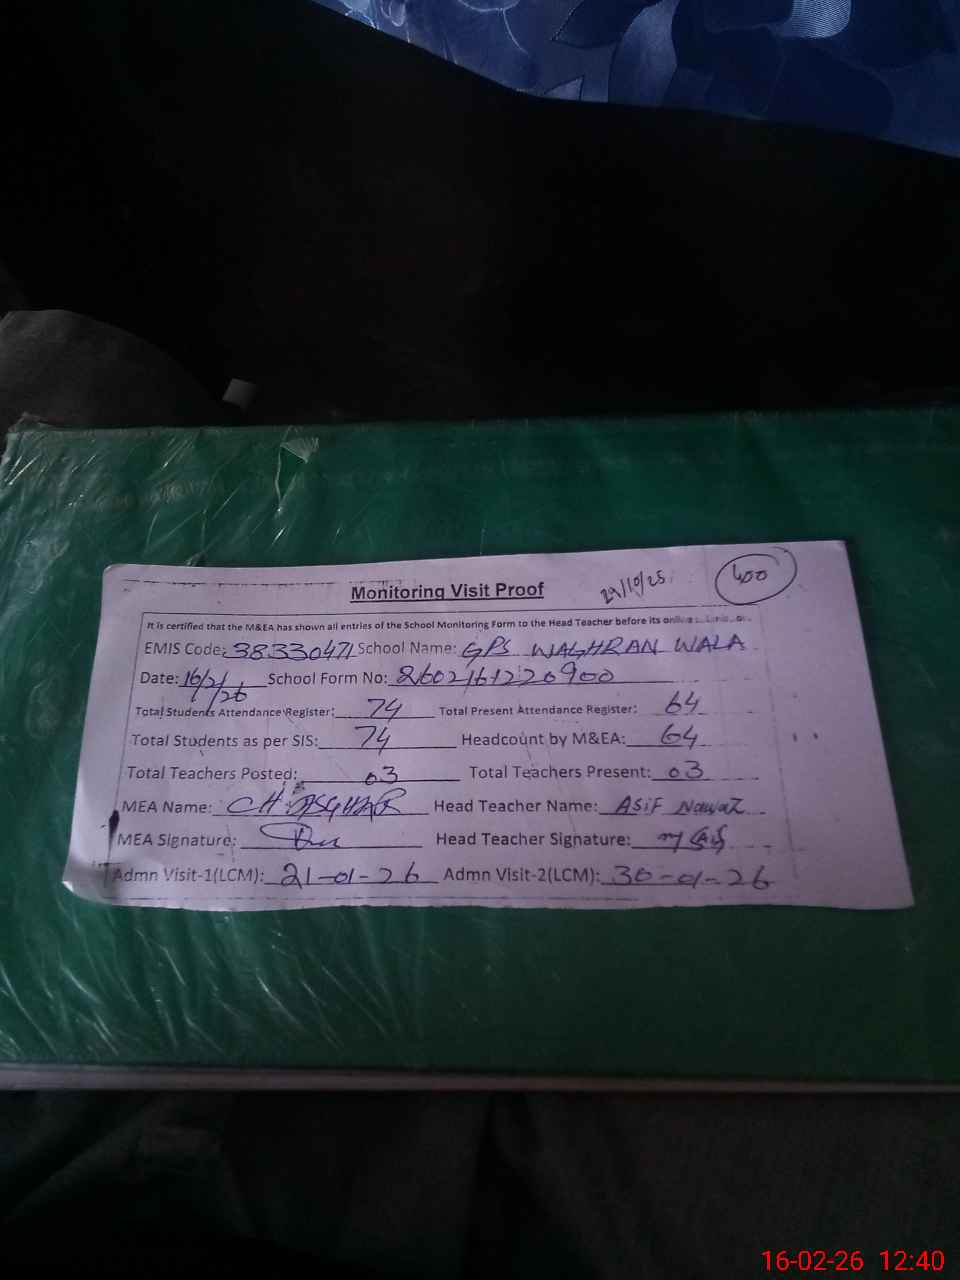 Monitoring Visit Proof 29/10/25 400
It is certified that the M&EA has shown all entries of the School Monitoring Form to the Head Teacher before its online
EMIS Code: 38330471 School Name: GPS WAGHRAN WALA
Date: 16/2/26 School Form No: 2602161220900
Total Students Attendance Register: 74 Total Present Attendance Register: 64
Total Students as per SIS: 74 Headcount by M&EA: 64
Total Teachers Posted: 03 Total Teachers Present: 03
MEA Name: CH. ASGHAR Head Teacher Name: ASiF Nawaz
MEA Signature: Head Teacher Signature:
Admn Visit-1(LCM): 21-01-26 Admn Visit-2(LCM): 30-01-26
16-02-26 12:40